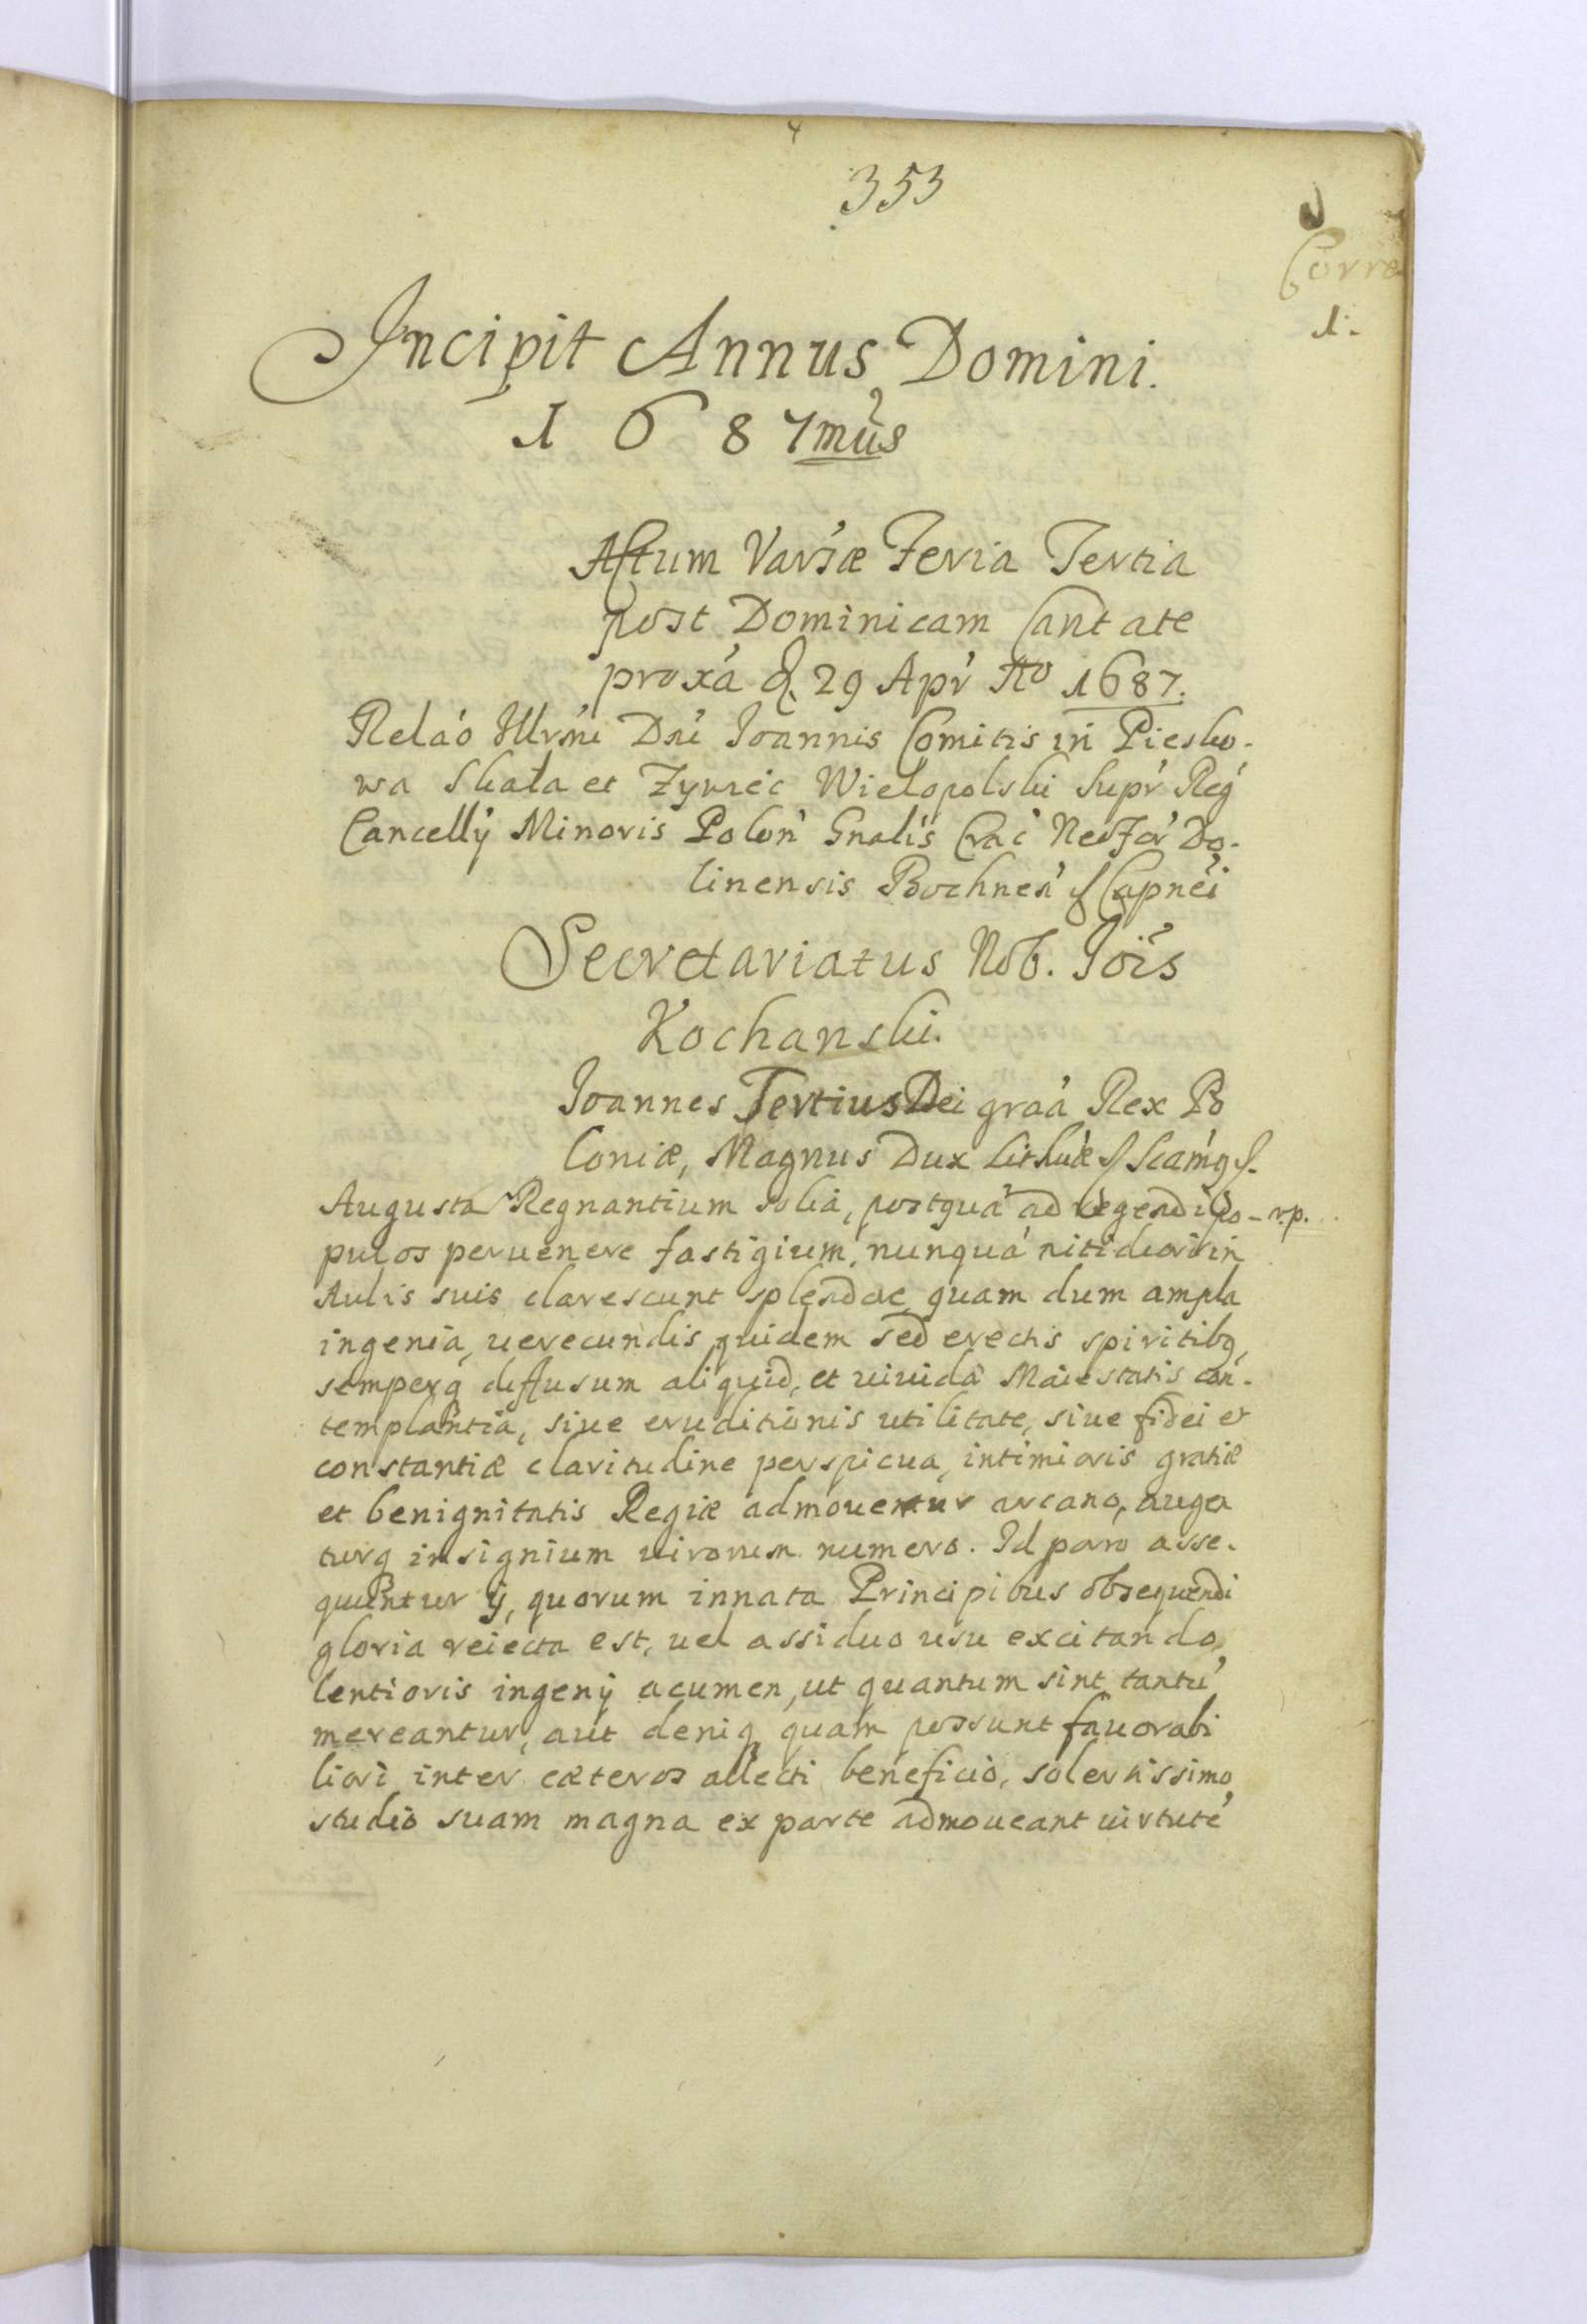 353
Corre
1.
Incipit Annus Domini.
1 6 8 7mũs
Actum Varsæ Feria Tertia
post Dominicam Cantate
proxá d. 29 Apr' Aº 1687.
Relaó Illrmi Dni Joannis Comitis in Piesko-
wa Skała et Zywiec Wielopolski Supr' Reg'
Cancellÿ Minoris Polon' Gnalis Crac' Neofor' Do-
linensis Bochnen' & Capnei
Secretariatus Nob. Jois
Kochanski.
Joannes Tertius Dei graá Rex Po
loniæ, Magnus Dux Lithuæ & Scamq &.
Augusta Regnantium solia, postquá ad regendi po- r.p.
pulos peruenere fastigium, nunquá nitidiori in
Aulis suis clarescunt splendore, quam dum ampla
ingenia, uerecundis quidem sed erectis spiritibq,
semperq diffusum aliquid, et uiuida Maiestatis con-
templantia, siue eruditionis utilitate, siue fidei et
constantiæ claritudine perspicua, intimioris gratiæ
et benignitatis Regiæ admouentur arcano, auge
turq insignium uirorum numero. Id porro asse-
quuntur ÿ, quorum innata Principibus obsequendi
gloria reiecta est, uel assiduo usu excitando,
lentioris ingenÿ acumen, ut quantum sint tantú
mereantur, aut deniq quam possunt fauorabi
liori inter cæteros allecti beneficio, solertissimo
studio suam magna ex parte admoueant uirtuté